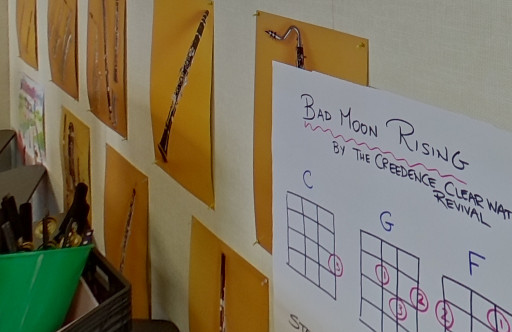 BAD MOON RISING
BY THE CREEDENCE CLEAR WAT
REVIVAL
C
G
F
3
1
2
3
2
1